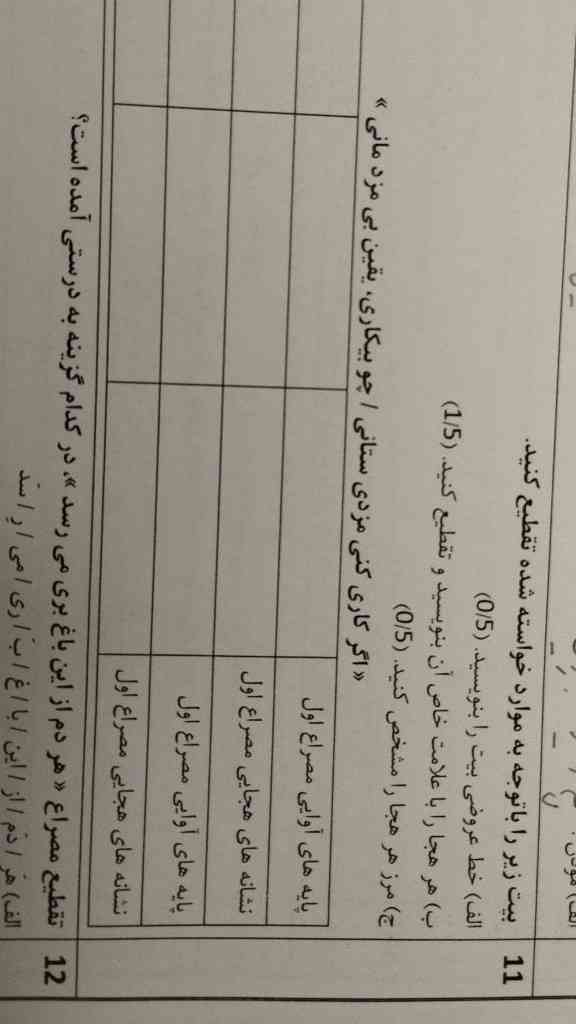 11
بیت زیر را با توجه به موارد خواسته شده تقطیع کنید.
الف) خط عروضی بیت را بنویسید. (0/5)
ب) هر هجا را با علامت خاص آن بنویسید و تقطیع کنید. (1/5)
ج) مرز هر هجا را مشخص کنید. (0/5)
«اگر کاری کنی مزدی ستانی / چو بیکاری، یقین بی مزد مانی »
پایه های آوایی مصراع اول
نشانه های هجایی مصراع اول
پایه های آوایی مصراع اول
نشانه های هجایی مصراع اول
12
تقطیع مصراع « هر دم از این باغ بری می رسد »، در کدام گزینه به درستی آمده است؟
الف) هَر / دَم / اَز / این / با / غ / بَ / ری / می / رِ / سَد